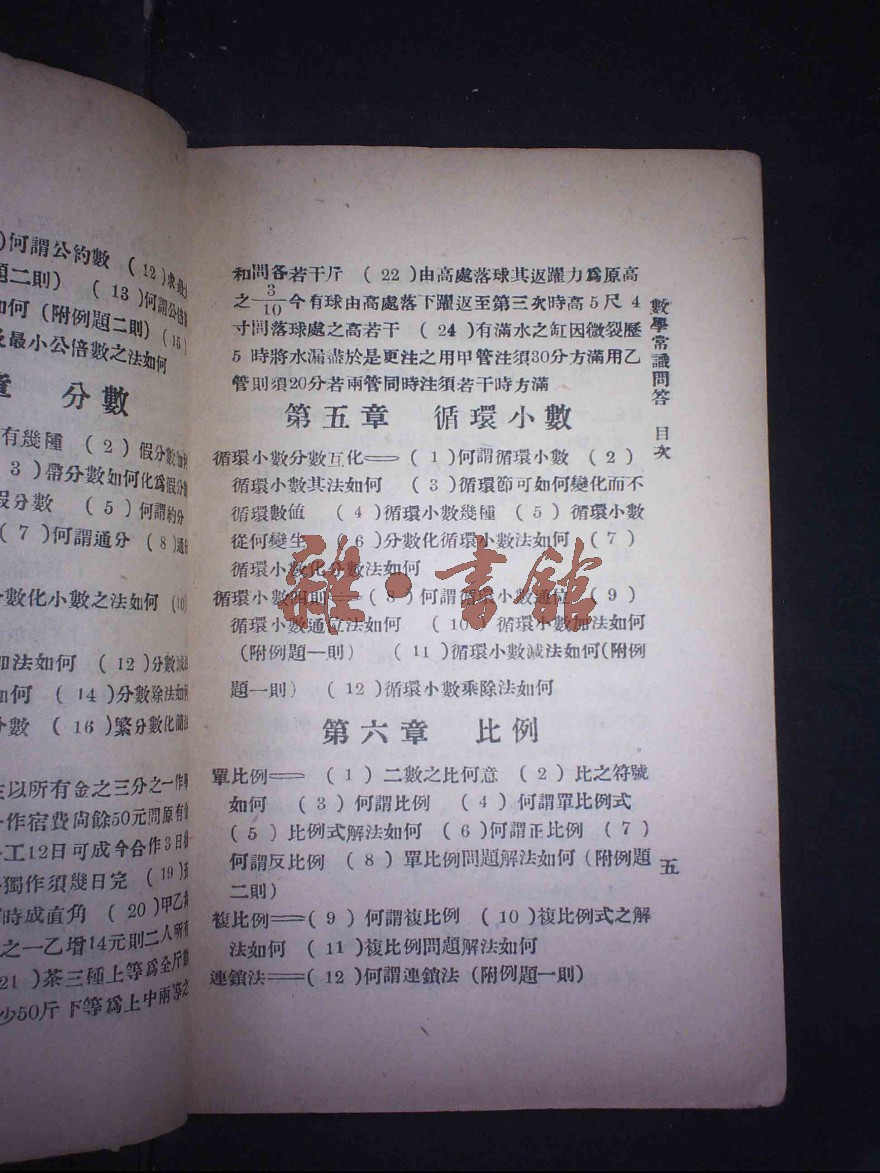 )何謂公約數 ( 12 )求
題二則) ( 13 )何謂公倍數
如何 (附例題二則) ( 15 )
及最小公倍數之法如何
章 分數
有幾種 ( 2 ) 假分數如何
3 )帶分數如何化爲假分數
假分數 ( 5 )何謂約分
( 7 )何謂通分 ( 8 )通分
分數化小數之法如何 (10)
加法如何 ( 12 )分數減法
如何 ( 14 )分數除法如何
分數 ( 16 )繁分數化簡法
生以所有金之三分之一作
作宿費尙餘50元問原有金
工12日可成今合作3日
獨作須幾日完 ( 19 )
時成直角 ( 20 )甲乙
之一乙增14元則二人所有
21 )茶三種上等爲全斤數
少50斤下等爲上中兩等之
和問各若干斤 ( 22 )由高處落球其返躍力爲原高
之3/10今有球由高處落下躍返至第三次時高5尺4
寸問落球處之高若干 ( 24 )有滿水之缸因微裂歷
5時將水漏盡於是更注之用甲管注須30分方滿用乙
管則須20分若兩管同時注須若干時方滿
第五章 循環小數
循環小數分數互化══ ( 1 )何謂循環小數 ( 2 )
循環小數其法如何 ( 3 )循環節可如何變化而不
循環數値 ( 4 )循環小數幾種 ( 5 ) 循環小數
從何變生 ( 6 )分數化循環小數法如何 ( 7 )
循環小數化分數法如何
循環小數四則══( 8 )何謂循環小數通位 ( 9 )
循環小數通位法如何 ( 10 )循環小數加法如何
(附例題一則) ( 11 )循環小數減法如何(附例
題一則) ( 12 )循環小數乘除法如何
第六章 比例
單比例══ ( 1 ) 二數之比何意 ( 2 ) 比之符號
如何 ( 3 ) 何謂比例 ( 4 ) 何謂單比例式
( 5 ) 比例式解法如何 ( 6 )何謂正比例 ( 7 )
何謂反比例 ( 8 ) 單比例問題解法如何 (附例題
二則)
複比例══( 9 ) 何謂複比例 ( 10 )複比例式之解
法如何 ( 11 )複比例問題解法如何
連鎖法══( 12 )何謂連鎖法 (附例題一則)
數學常識問答 目次
五
雜·書館